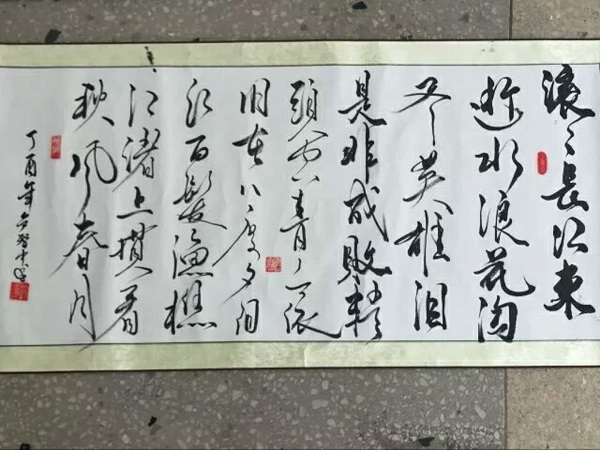 滚〻長江東
逝水浪花淘
尽英雄泪
是非成敗转
頭空青山依
旧在几度夕阳
红白髮漁樵
江渚上惯看
秋风春月
丁酉年